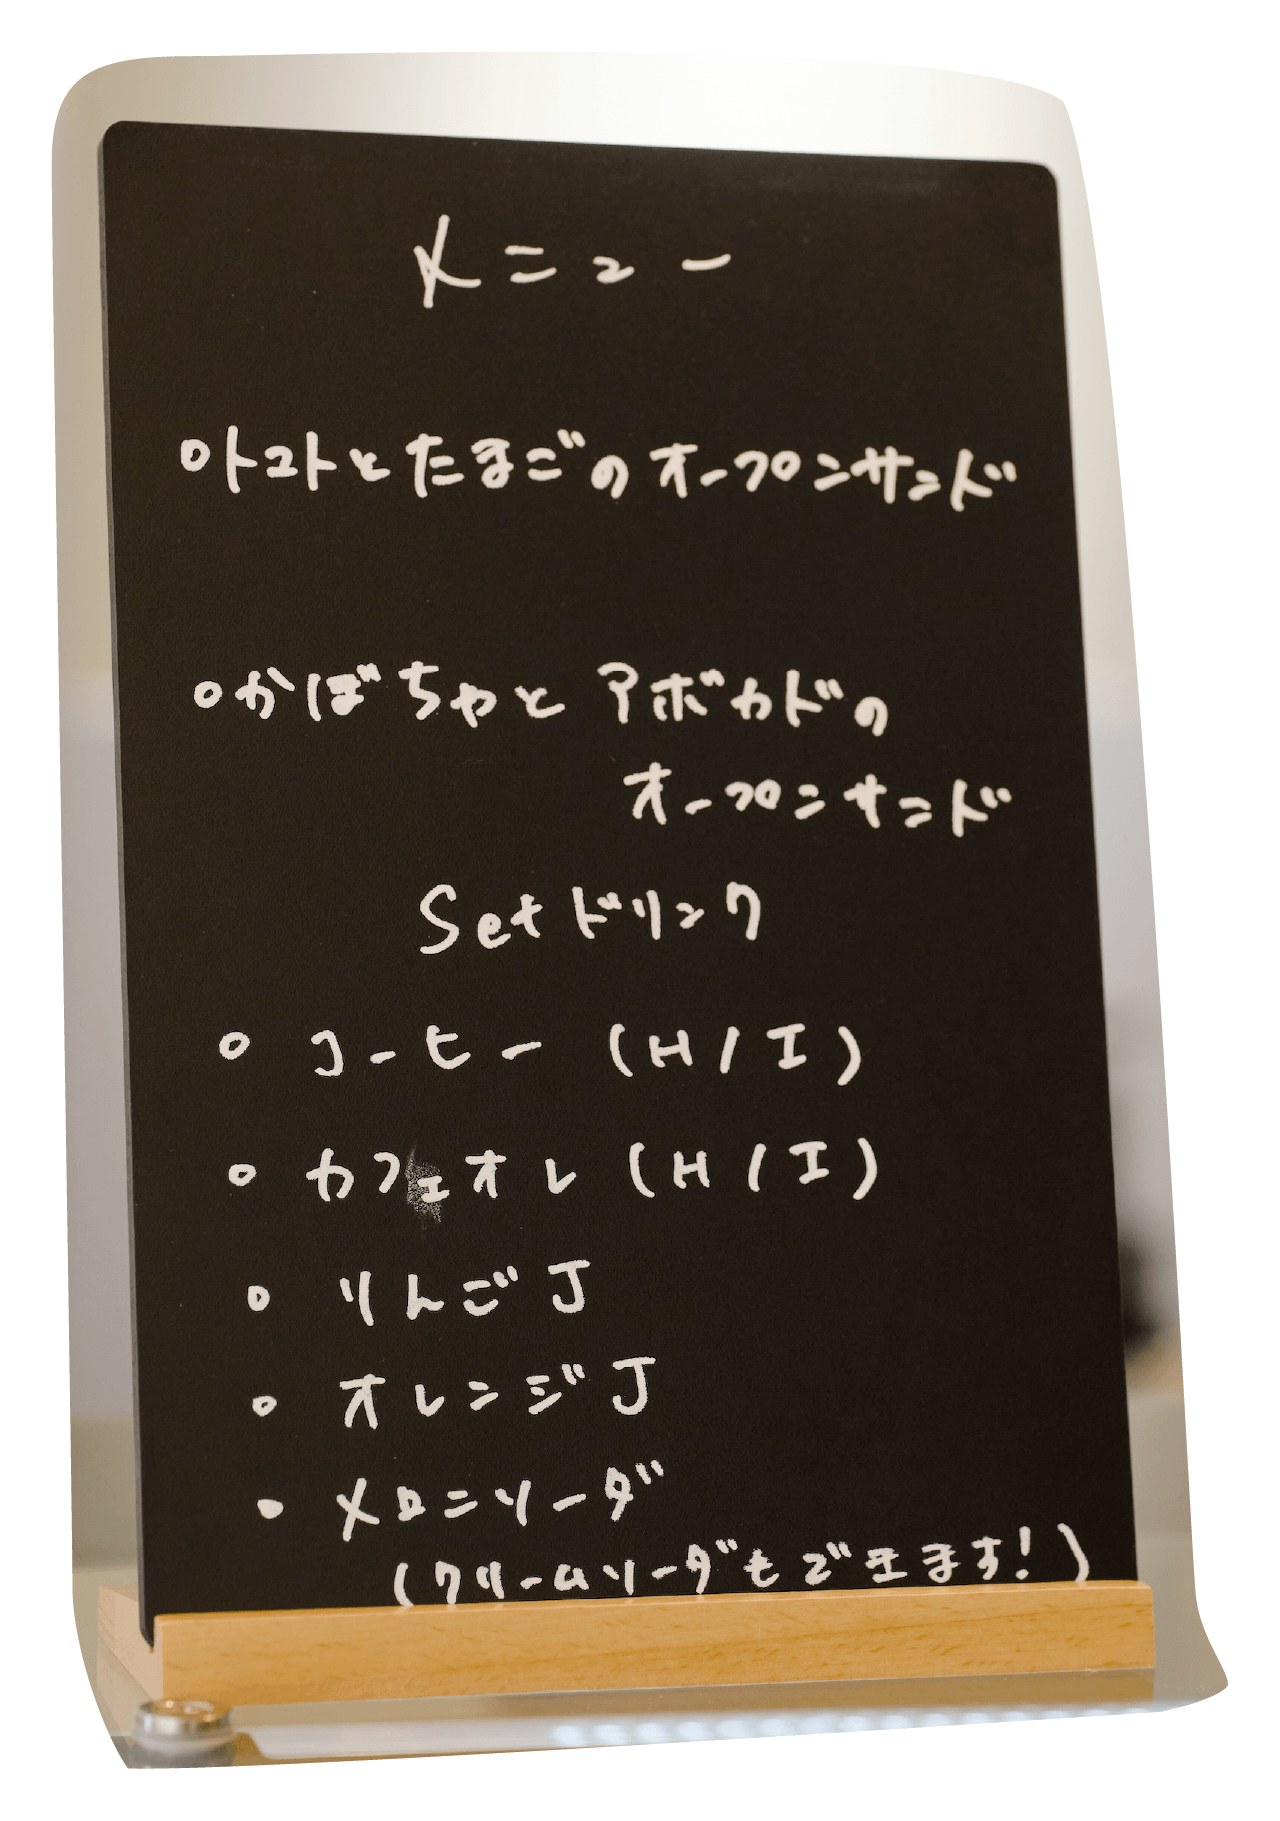 メニュー
○トマトとたまごのオープンサンド
○かぼちゃとアボカドの
オープンサンド
Setドリンク
○ コーヒー (H/I)
○ カフェオレ (H/I)
○ りんごJ
○ オレンジJ
○ メロンソーダ
(クリームソーダもできます!)